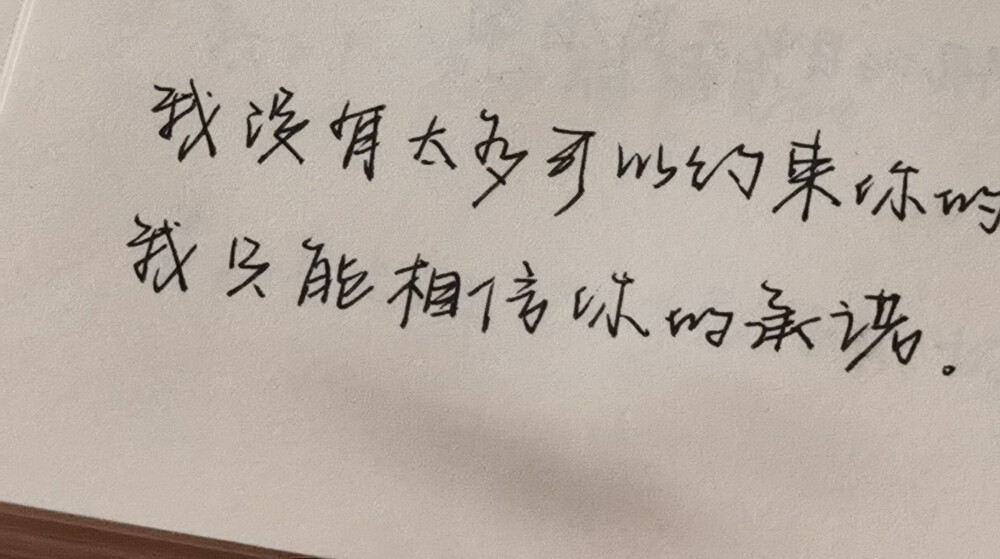 我没有太多可以约束你的
我只能相信你的承诺。